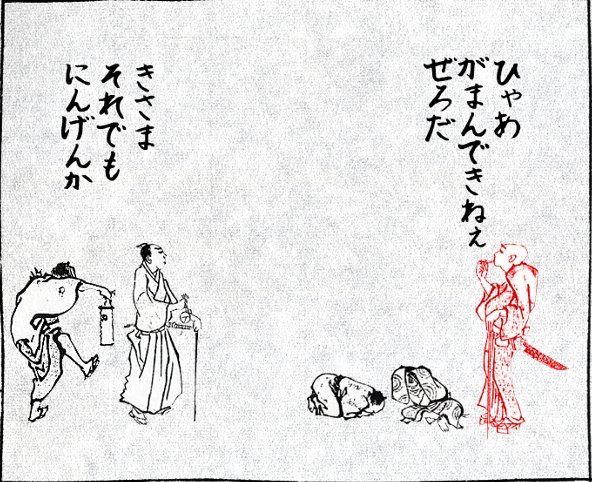 ひゃあ
がまんできねぇ
ぜろだ
きさま
それでも
にんげんか